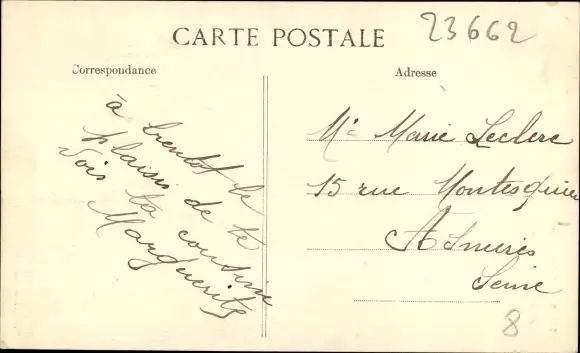 CARTE POSTALE
23662
Correspondance
Adresse
à bientot le
plaisir de te
Voir ta cousine
Marguerite
Mle Marie Leclerc
15 rue Montesquieu
Asnieres
Seine
8